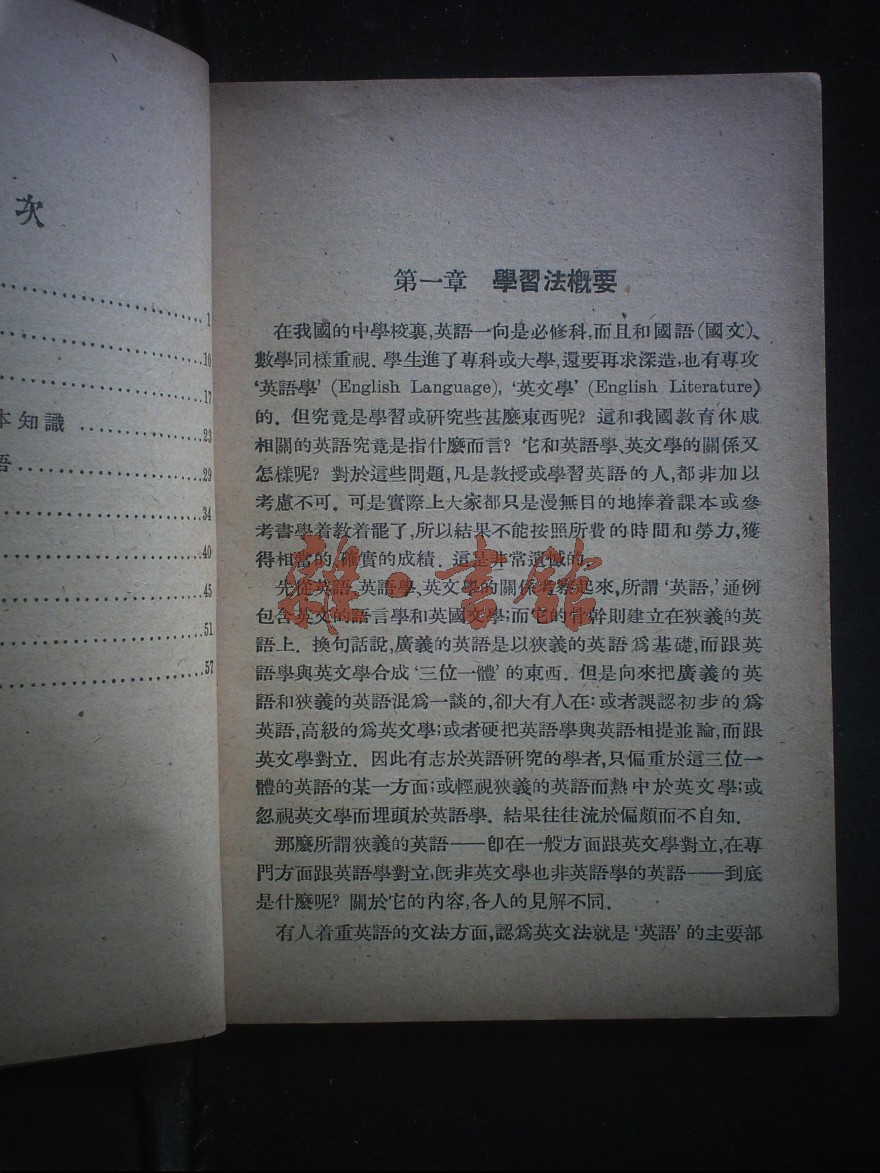 次
1
10
17
本知識 23
語 29
34
40
45
51
57
第一章 學習法概要
在我國的中學校裏,英語一向是必修科,而且和國語(國文)、
數學同樣重視. 學生進了專科或大學,還要再求深造,也有專攻
‘英語學’ (English Language), ‘英文學’ (English Literature)
的. 但究竟是學習或研究些甚麼東西呢? 這和我國教育休戚
相關的英語究竟是指什麼而言? 它和英語學、英文學的關係又
怎樣呢? 對於這些問題,凡是教授或學習英語的人,都非加以
考慮不可. 可是實際上大家都只是漫無目的地捧着課本或參
考書學着教着罷了,所以結果不能按照所費的時間和勞力,獲
得相當的、確實的成績. 這是非常遺憾的.
先從英語、英語學、英文學的關係考察起來,所謂 ‘英語,’ 通例
包含英文的語言學和英國文學;而它的骨幹則建立在狹義的英
語上. 換句話說,廣義的英語是以狹義的英語爲基礎,而跟英
語學與英文學合成 ‘三位一體’ 的東西. 但是向來把廣義的英
語和狹義的英語混爲一談的,卻大有人在: 或者誤認初步的爲
英語,高級的爲英文學;或者硬把英語學與英語相提並論,而跟
英文學對立. 因此有志於英語研究的學者,只偏重於這三位一
體的英語的某一方面;或輕視狹義的英語而熱中於英文學;或
忽視英文學而埋頭於英語學. 結果往往流於偏頗而不自知.
那麼所謂狹義的英語——卽在一般方面跟英文學對立,在專
門方面跟英語學對立,旣非英文學也非英語學的英語——到底
是什麼呢? 關於它的內容,各人的見解不同.
有人着重英語的文法方面,認爲英文法就是 ‘英語’ 的主要部
雜·書館